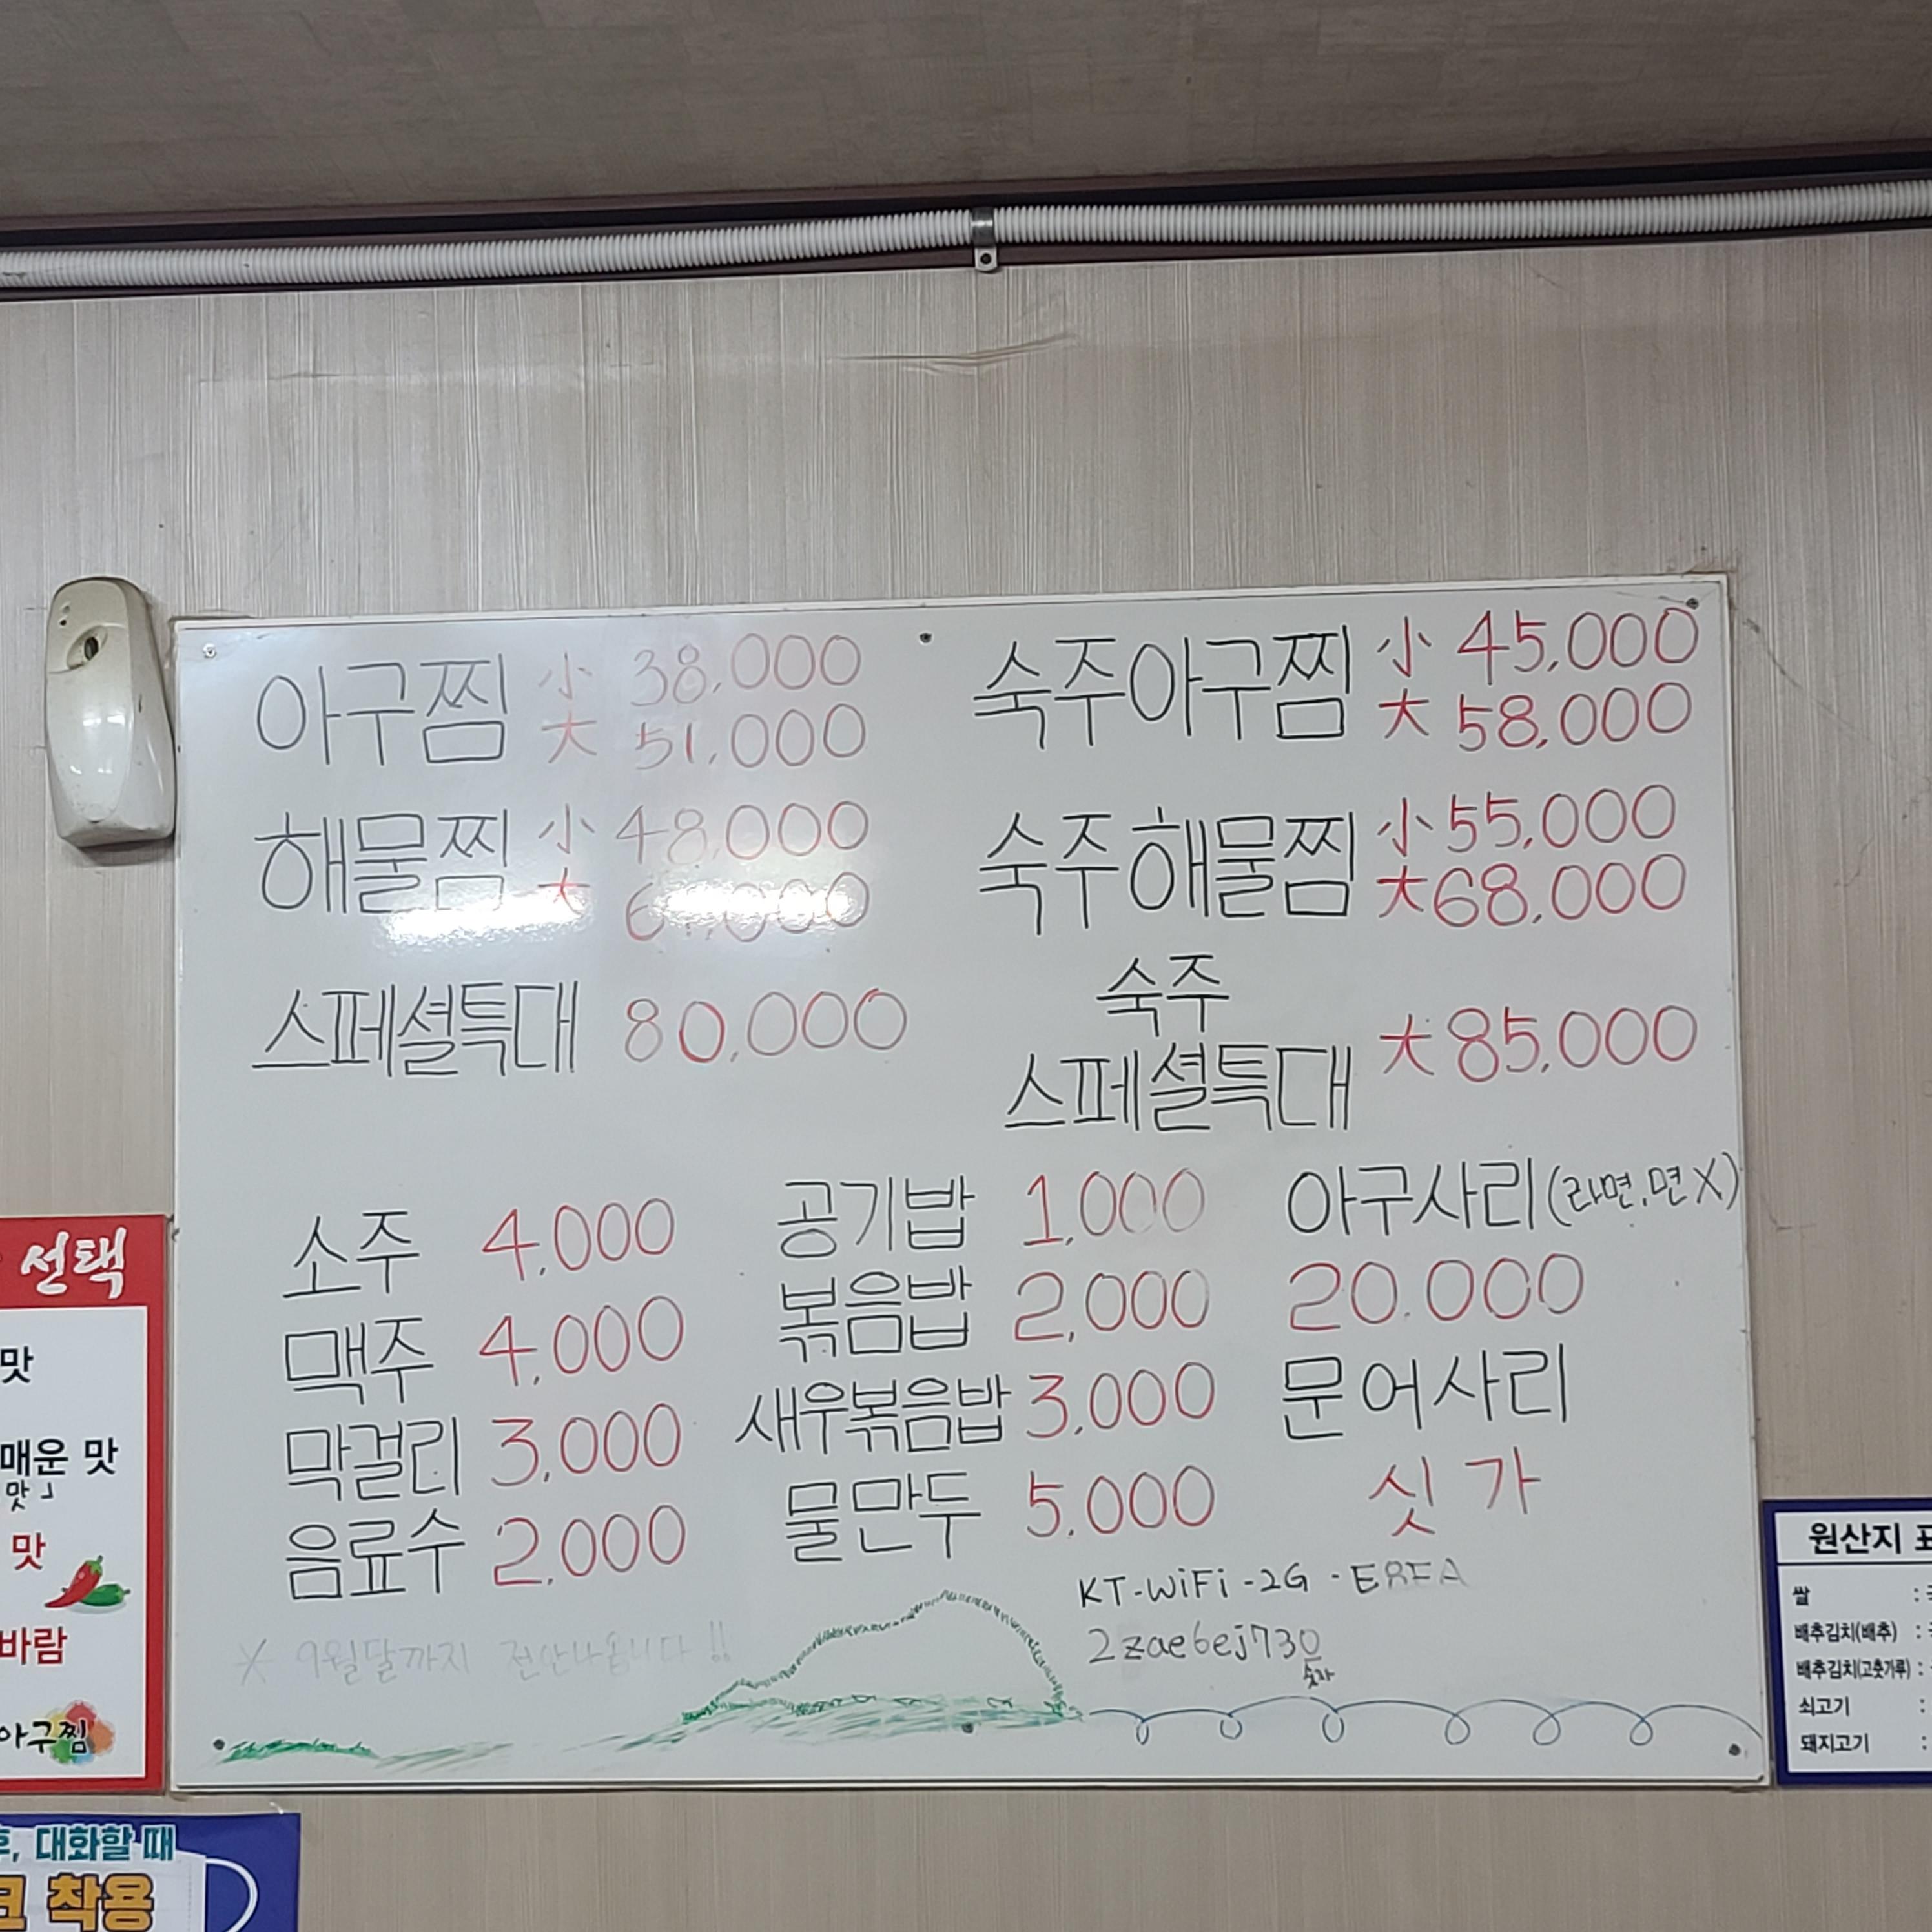 아구찜 小 38,000
大 51,000
해물찜 小 48,000
大
스페셜특대 80,000
숙주아구찜 小 45,000
大 58,000
숙주해물찜 小 55,000
大 68,000
숙주
스페셜특대 大 85,000
소주 4,000
맥주 4,000
막걸리 3,000
음료수 2,000
공기밥 1,000
볶음밥 2,000
새우볶음밥 3,000
물만두 5,000
아구사리(라면,면X)
20.000
문어사리
싯가
KT-WiFi-2G-E8FA
2zae6ej730
숫자
※ 9월달까지 전안나옵니다!!
선택
맛
매운 맛
맛」
맛
바람
아구찜
후, 대화할 때
크 착용
원산지 표
쌀 :
배추김치(배추) :
배추김치(고춧가루) :
쇠고기 :
돼지고기 :